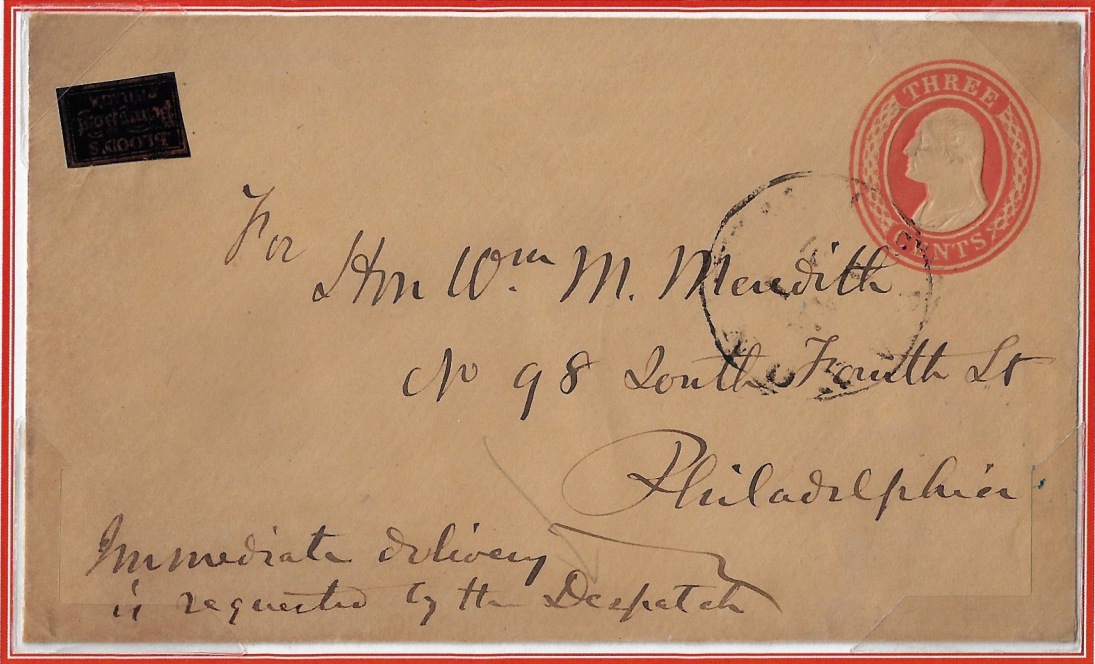 BLOOD'S
Penny Post
PHILAD'A
THREE
CENTS
For
Hon Wm. M. Meredith
No 98 South Fourth St
Philadelphia
Immediate delivery
is requested by the Despatch